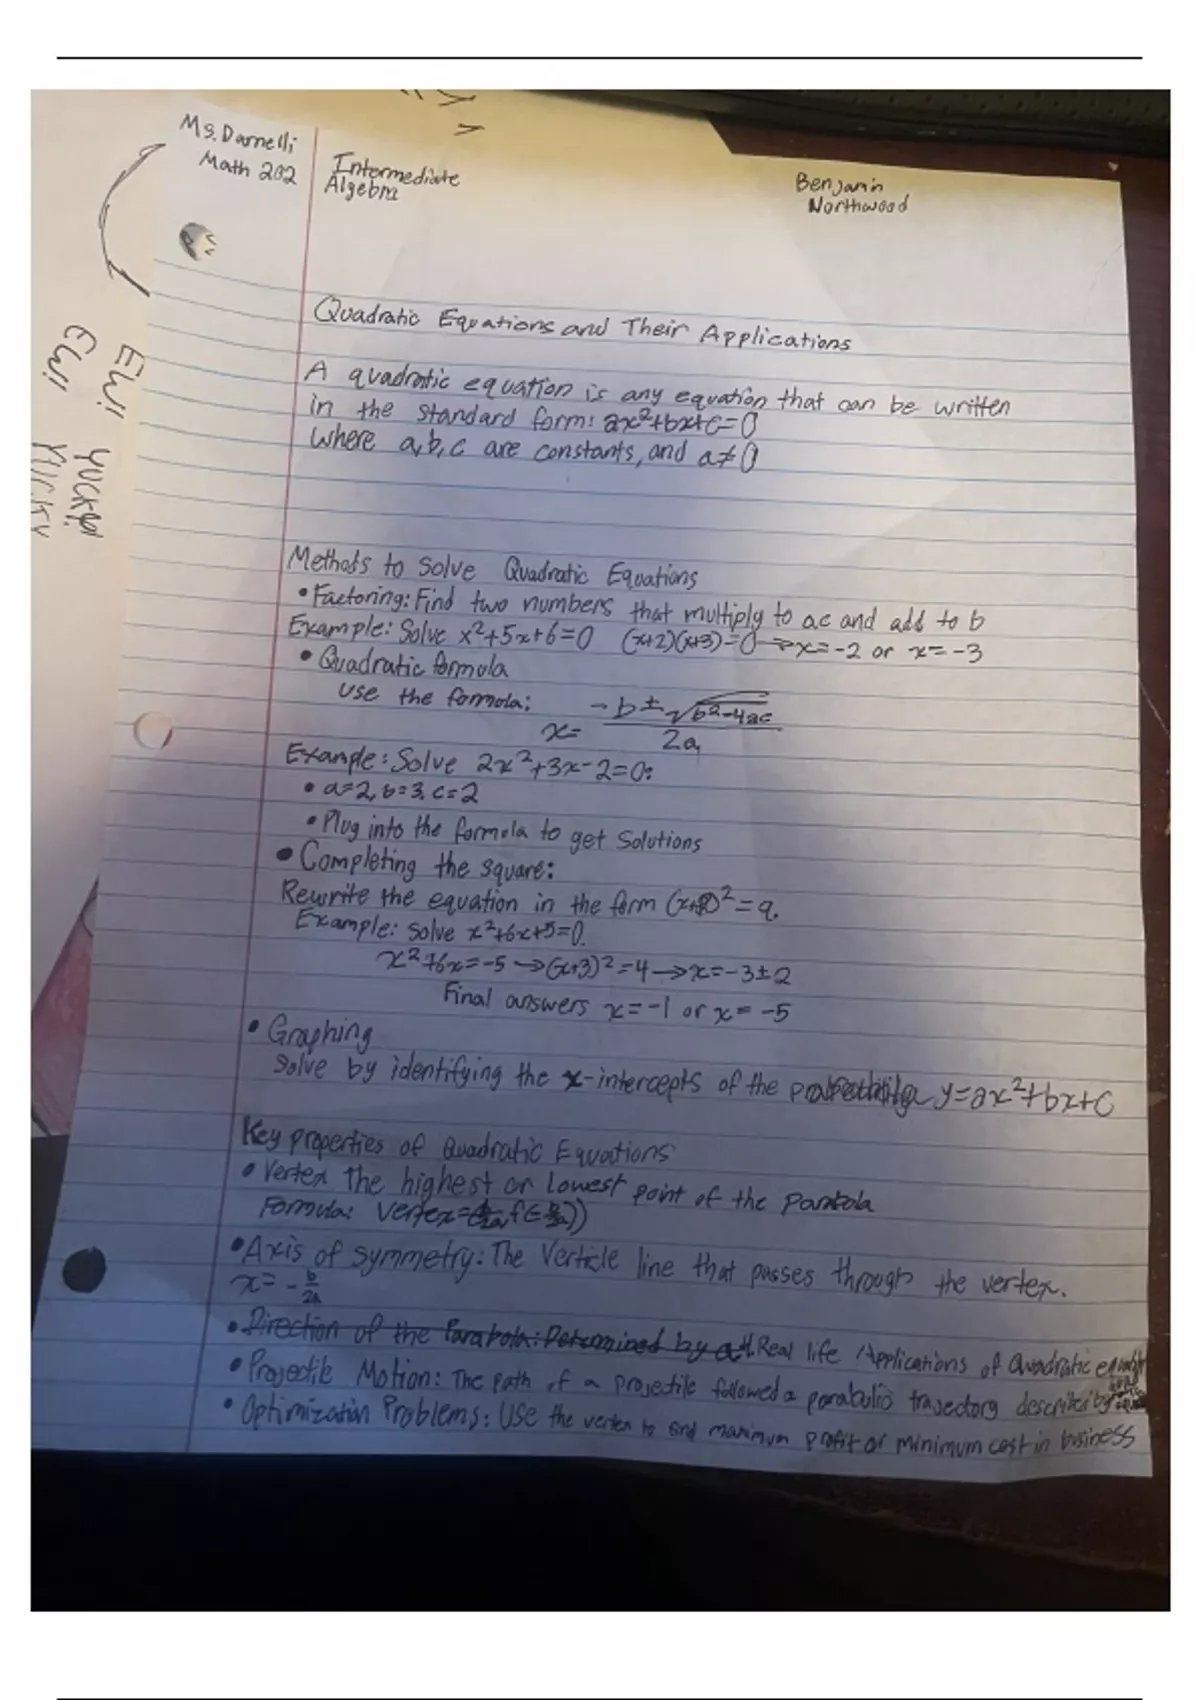 Ms. Darnelli
Math 202
Intermediate
Algebra
Benjamin
Northwood
EW! YUCKY!
EW! YUCKY
Quadratic Equations and Their Applications
A quadratic equation is any equation that can be written
in the standard form: ax²+bx+c=0
where a, b, c are constants, and a≠0
Methods to solve Quadratic Equations
• Factoring: Find two numbers that multiply to a.c and add to b
Example: Solve x²+5x+6=0 (x+2)(x+3)=0 → x=-2 or x=-3
• Quadratic formula
use the formula:
x= -b±√b²-4ac / 2a
Example: Solve 2x²+3x-2=0:
• a=2, b=3, c=2
• Plug into the formula to get solutions
• Completing the square:
Rewrite the equation in the form (x+p)²=q.
Example: solve x²+6x+5=0.
x²+6x=-5 → (x+3)²=4 → x=-3±2
Final answers x=-1 or x=-5
• Graphing
Solve by identifying the x-intercepts of the y=ax²+bx+c
Key properties of Quadratic Equations
• Vertex The highest or lowest point of the parabola
Formula: Vertex=
• Axis of symmetry: The Verticle line that passes through the vertex.
x= -b/2a
• Direction of the Parabola: Determined by a 4. Real life Applications of Quadratic
• Projectile Motion: The path of a projectile followed a parabolic trajectory described by
• Optimization Problems: Use the vertex to find maximum profit or minimum cost in business